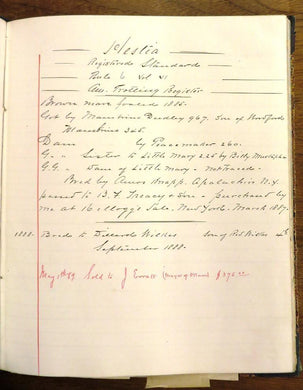 Hestia
Registered Standard
Rule 6 Vol VI
Am. Trotting Register
Brown mare foaled 1885.
Got by Mambrino Dudley 967. Son of Woodford
Mambrino 345.
Dam by Peacemaker 260.
G. " Sister to Little Mary 2.25 by Billy
G.G. " Dam of Little Mary - not traced.
Bred by Amos Knapp, Apalachin N.Y.
to B. F. Tracey & Son - purchased by
me at Kellogg's Sale. New York. March 1887.
1888. Bred to Dillard Wilkes son of Red Wilkes
September 1888.
May '89 Sold to J $375